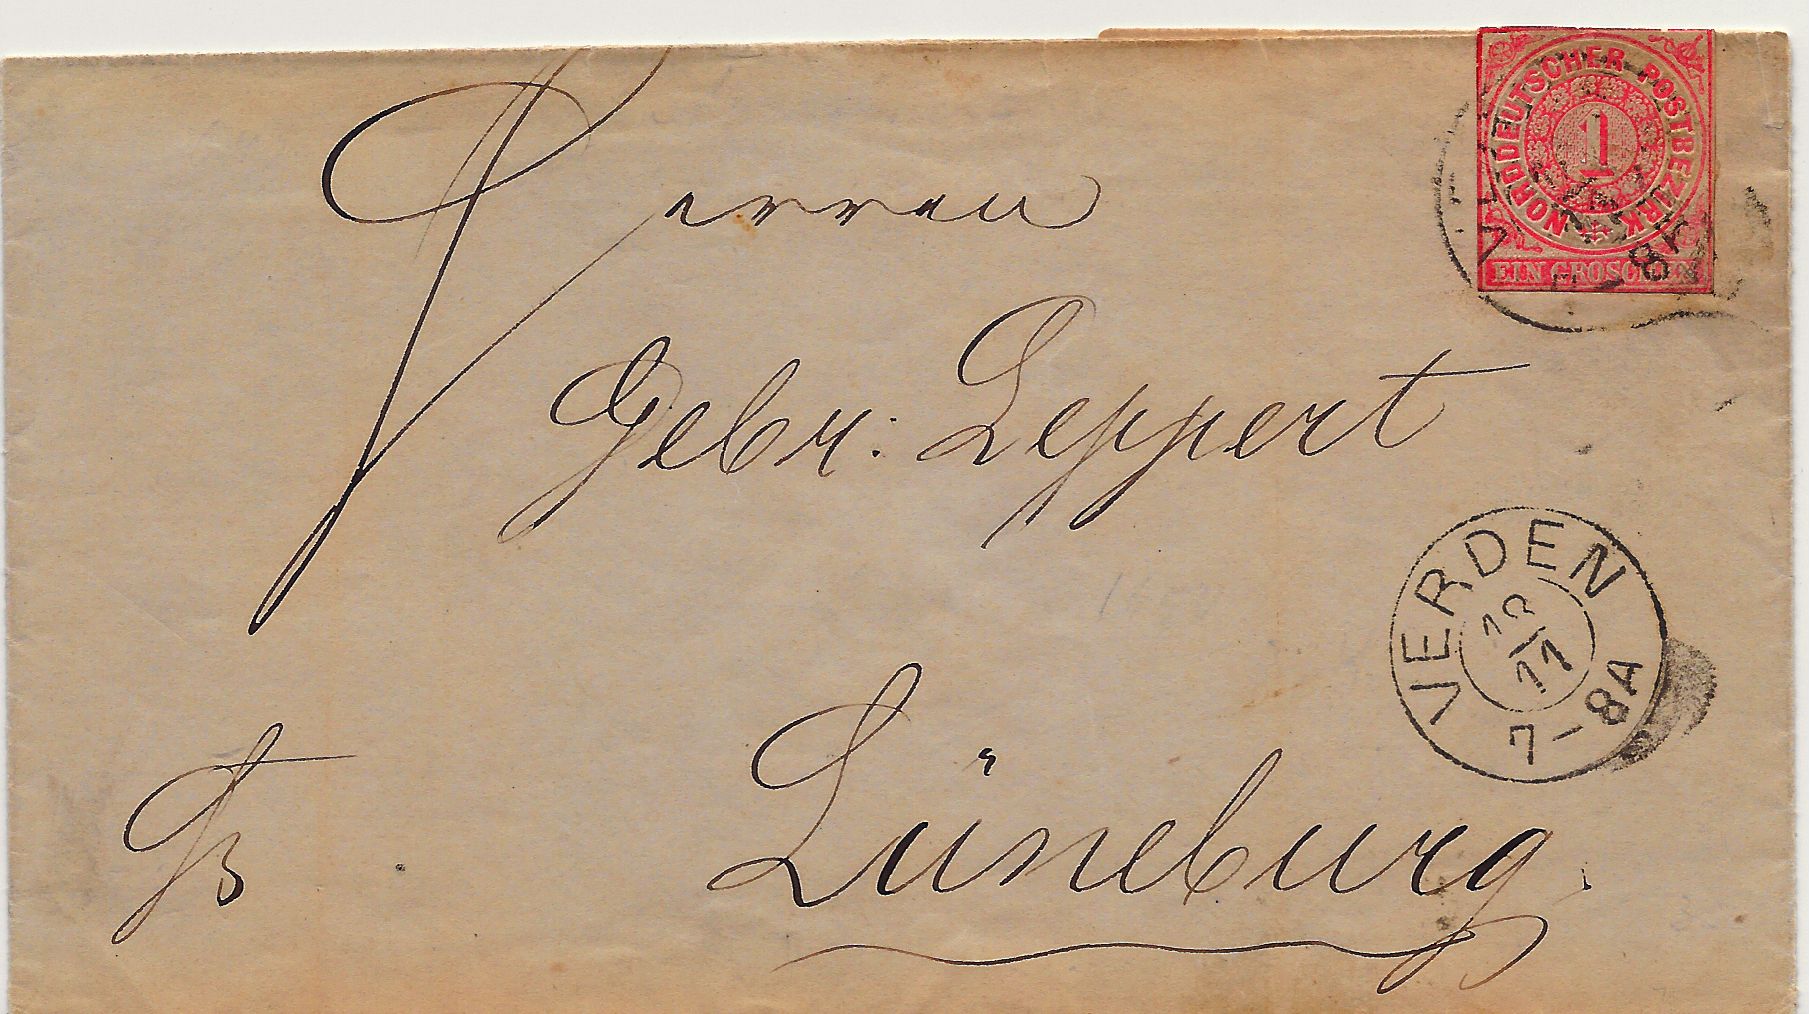 NORDDEUTSCHER POSTBEZIRK
1
EIN GROSCHEN
Herren
Gebr: Leppert
VERDEN
18/11
7-8A
Lüneburg.